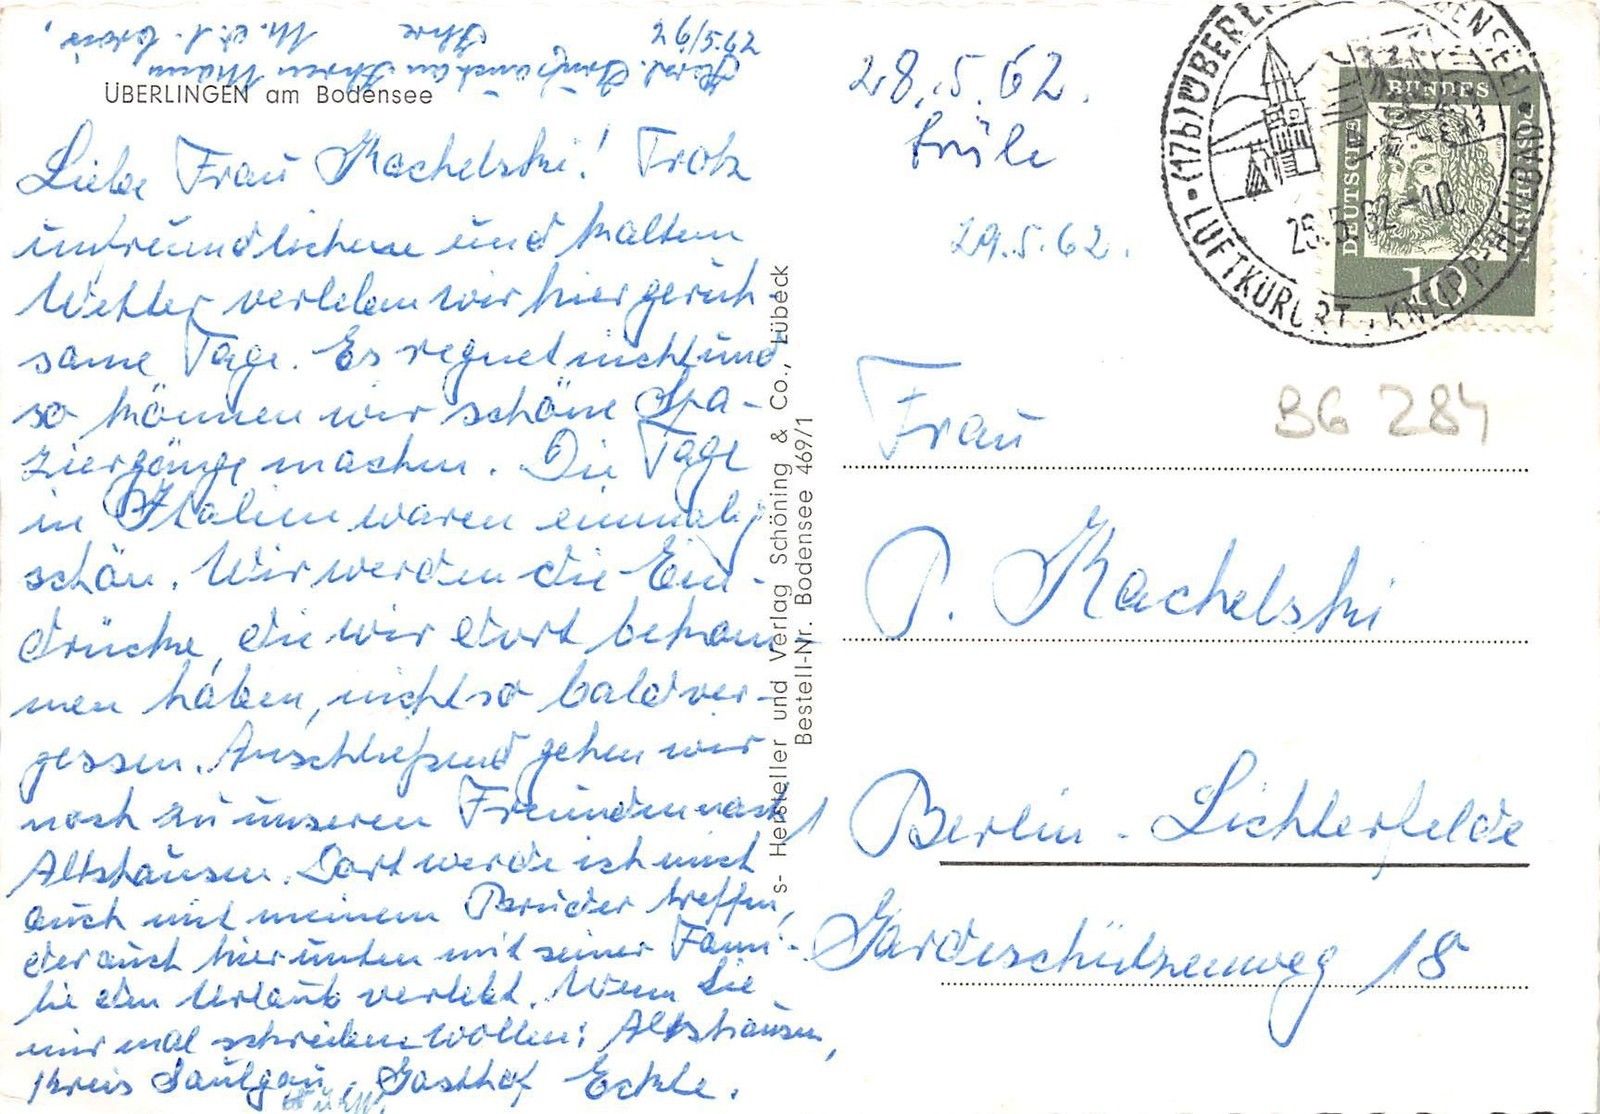 ÜBERLINGEN am Bodensee
Liebe Frau Kachelski! Trotz
unfreundlichem und kaltem
Wetter verleben wir hier geruh-
same Tage. Es regnet nicht und
so können wir schöne Spa-
ziergänge machen. Die Tage
in Italien waren einmalig
schön. Wir werden die Ein-
drücke, die wir dort bekom-
men haben, nicht so bald ver-
gessen. Anschließend gehen wir
noch zu unseren Freunden nach
Altshausen. Dort werde ich mich
auch mit meinem Bruder treffen,
der auch hier unten mit seiner Fami-
lie den Urlaub verlebt. Wenn Sie
mir mal schreiben wollen: Altshausen,
Kreis Saulgau, Gasthof Eckle.
Herzl. Grüße auch an Ihren Mann
26/5.62 Ihre
s- Hersteller und Verlag Schöning & Co., Lübeck
Bestell-Nr. Bodensee 469/1
28.5.62.
früh
29.5.62.
(17b) ÜBERLINGEN BODENSEE
LUFTKURORT KNEIPP-HEILBAD
25.5.62-10
DEUTSCHE BUNDESPOST
10
BG 284
Frau
P. Kachelski
Berlin-Lichterfelde
Gardeschützenweg 18